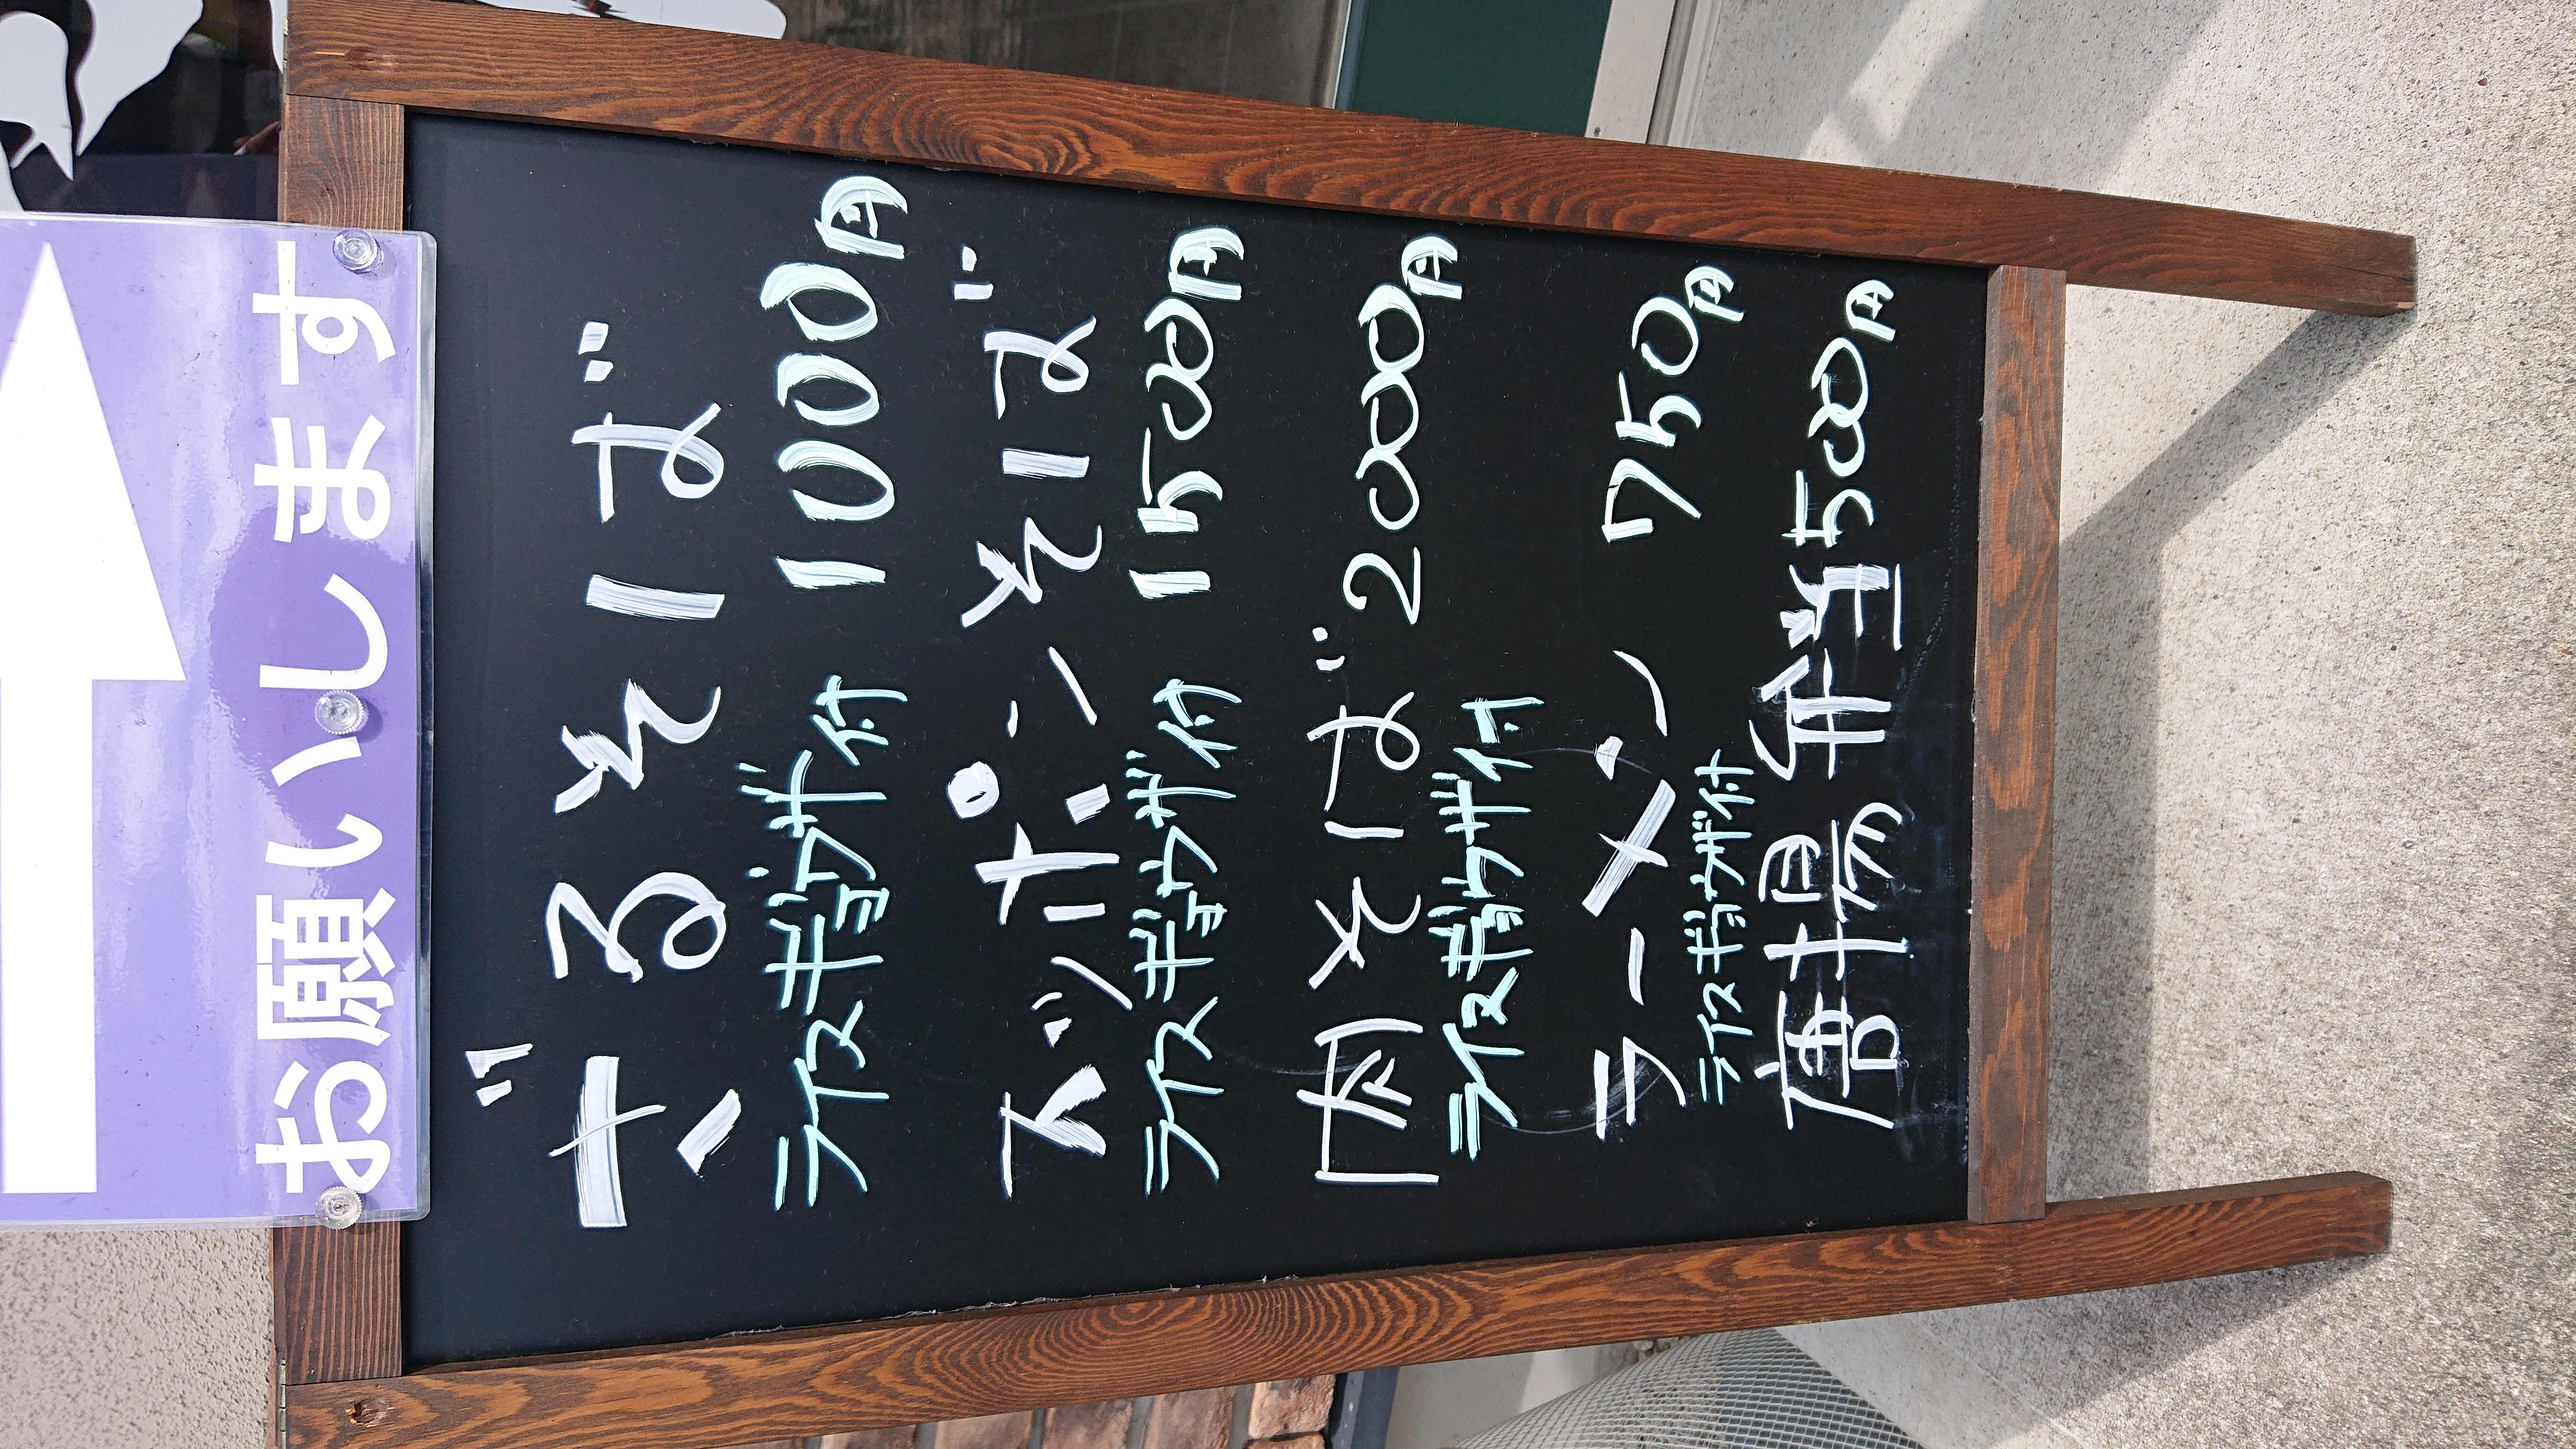 お願いします
ざるそば
ライスギョウザ付 1000円
スッポンそば
ライスギョウザ付 1500円
肉そば 2000円
ライスギョウザ付
ラーメン 750円
ライスギョウザ付
唐揚弁当500円